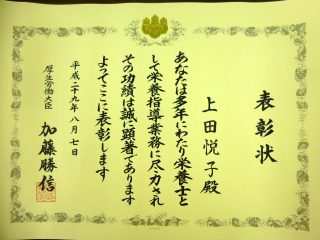 表彰状
上田悦子殿
あなたは多年にわたり栄養士と
して栄養指導業務に尽力され
その功績は誠に顕著であります
よってここに表彰します
平成二十九年八月七日
厚生労働大臣
加藤勝信